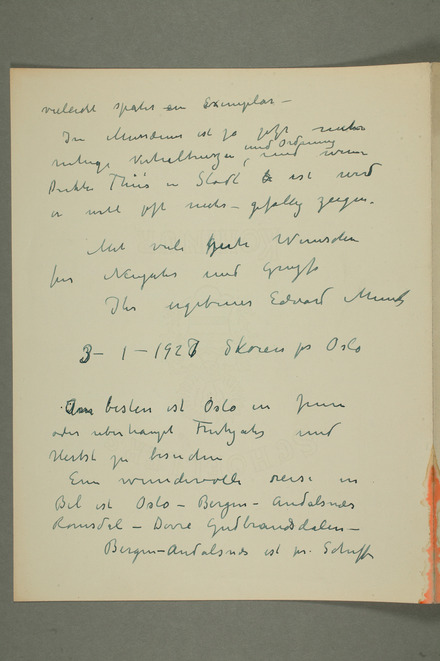 vieleicht später ein Exemplar –
In Museum ist ja jetzt
ruhige Verhältnisse und Ordnung, und wenn
Direktor Thiis in Stadt ist wird
er wohl oft gefällig zeigen.
Mit viele gute Wünschen
für Neujahr und Grüsse
Ihr ergebener Edvard Munch
3 – 1 – 1927 Skøien pr Oslo
Am besten ist Oslo in Juni
oder uberhaupt Fruhjahr und
Herbst zu besuchen
Eine wundervolle reise in
Bil ist Oslo – Bergen – Andalsnes
Romsdal – Dovre Gudbrandsdalen –
Bergen – Andalsnes ist pr. Schiff